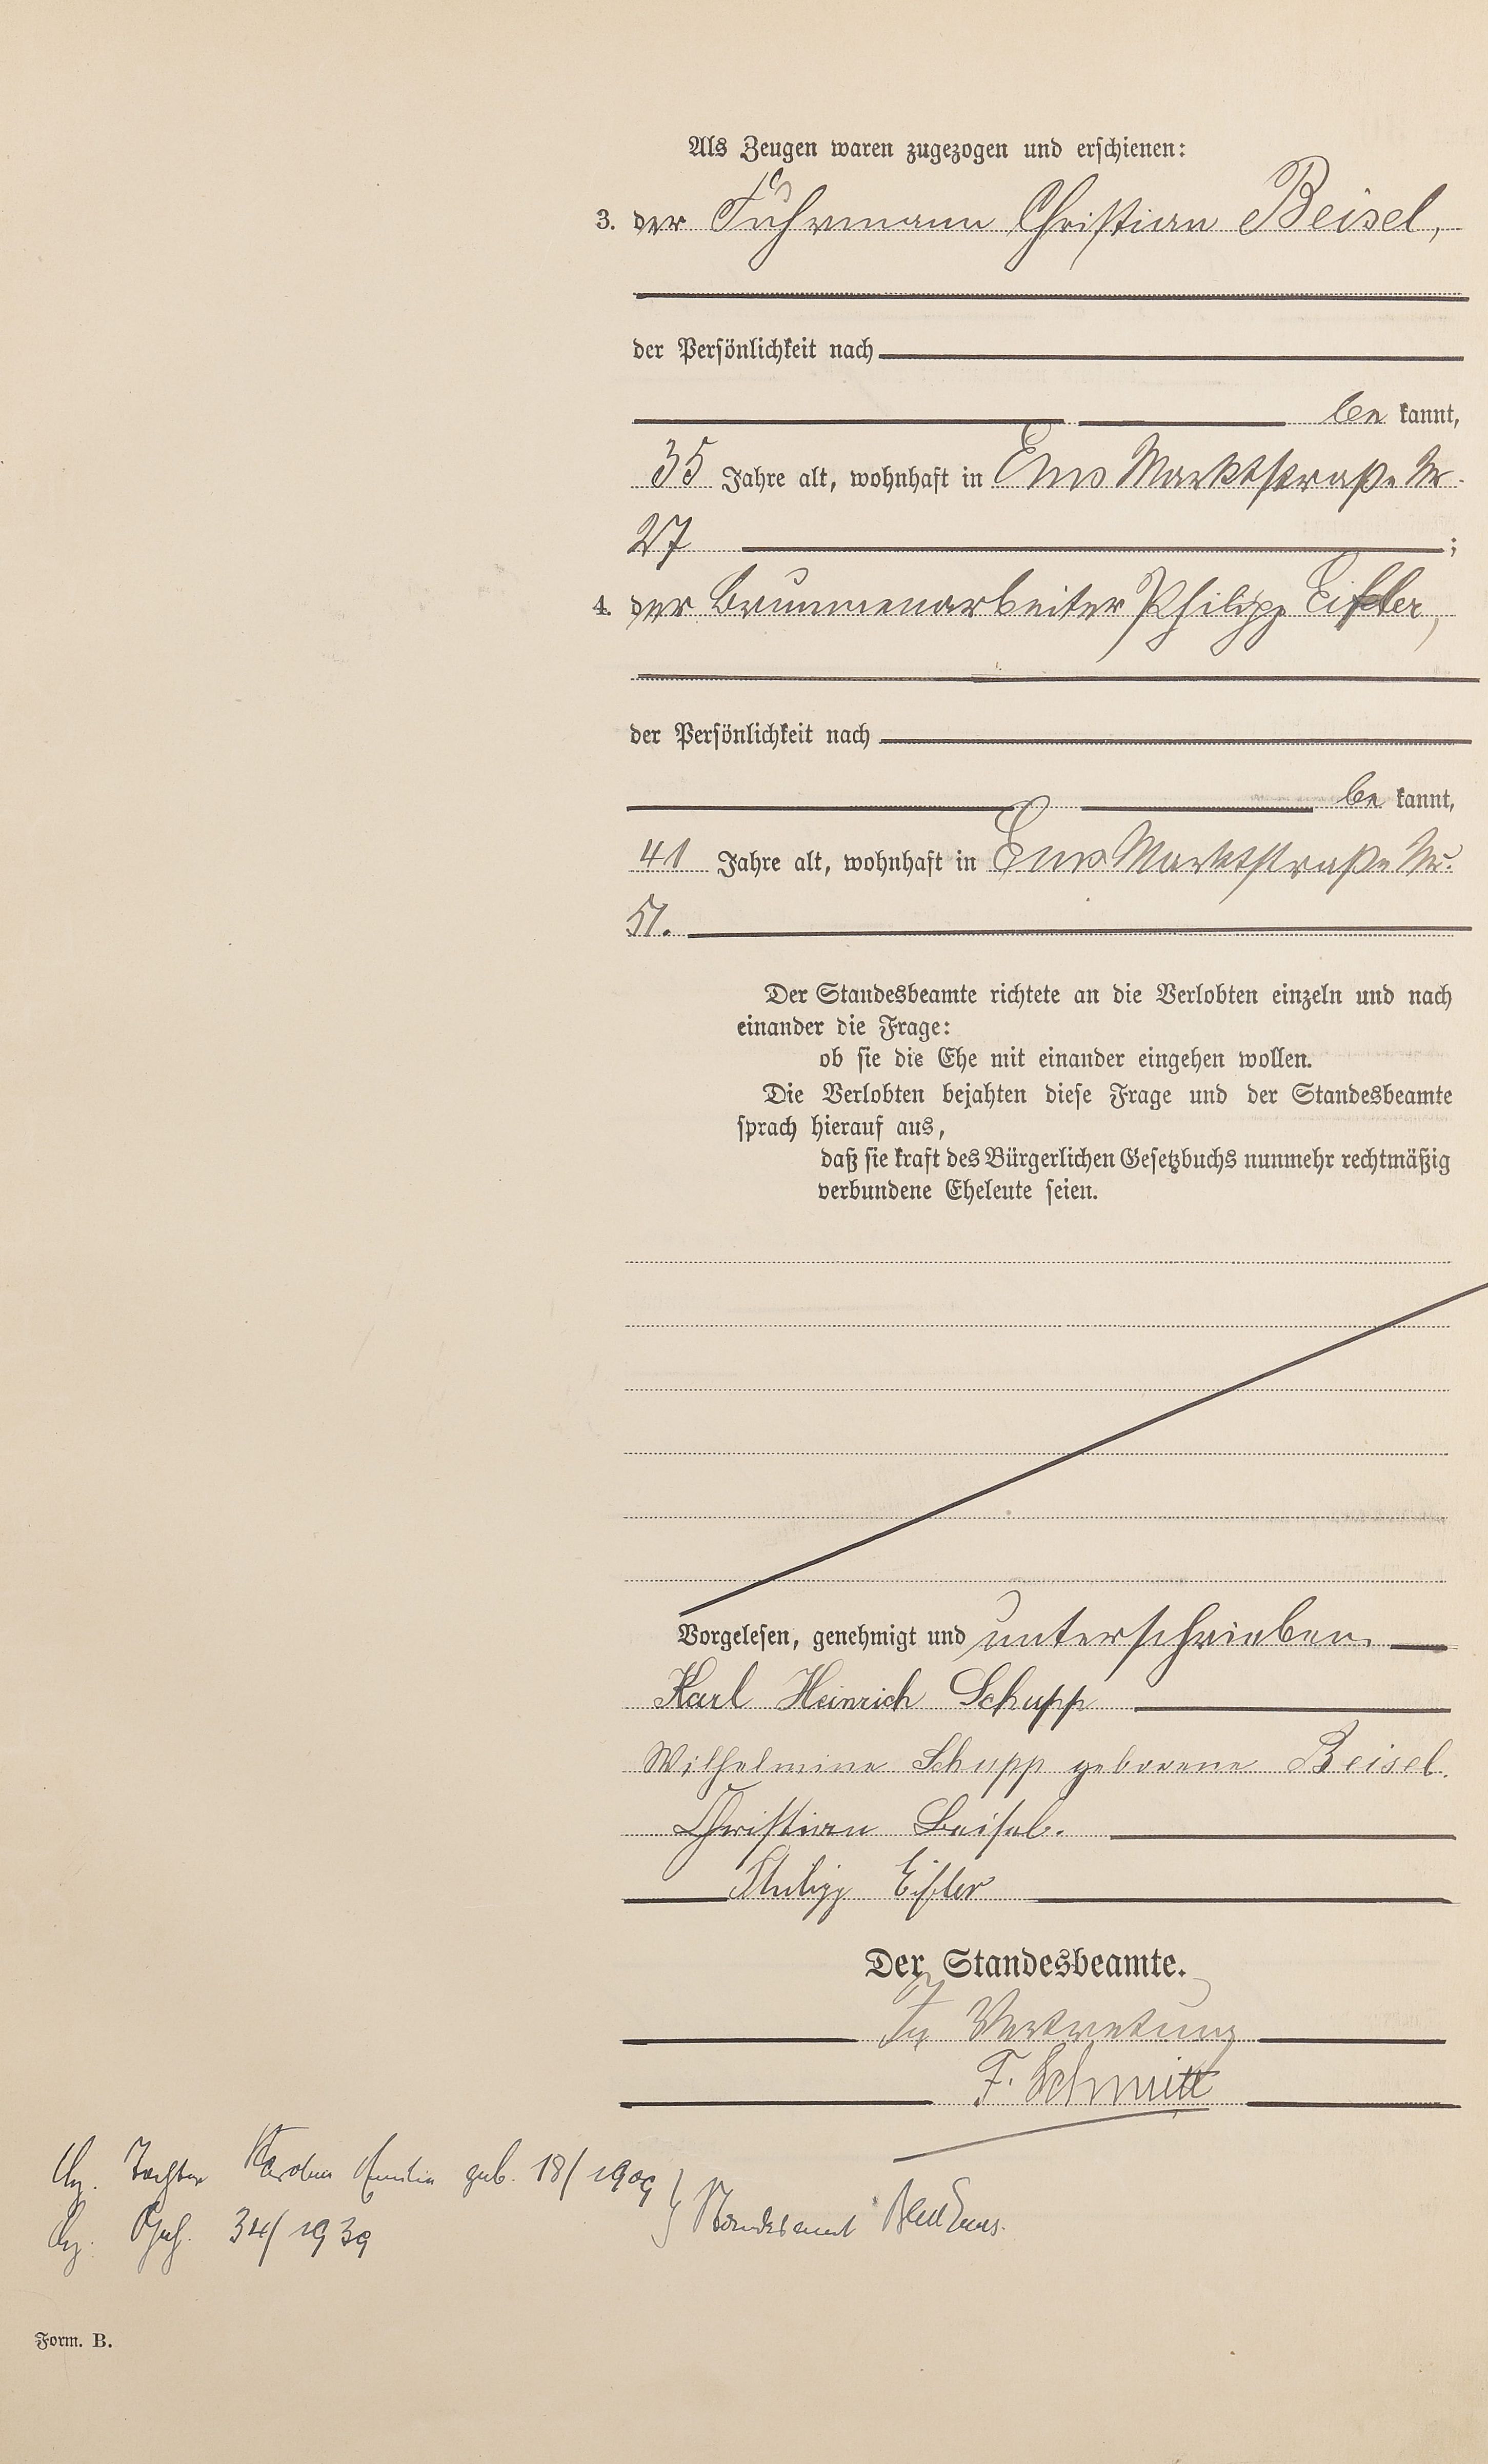 Als Zeugen waren zugezogen und erschienen:
3. der Fuhrmann Christian Beisel,
der Persönlichkeit nach
be kannt,
35 Jahre alt, wohnhaft in Ems Marktstraße Nr.
27 ;
4. der Brunnenarbeiter Philipp Eifler,
der Persönlichkeit nach
be kannt,
41 Jahre alt, wohnhaft in Ems Marktstraße Nr.
51.
Der Standesbeamte richtete an die Verlobten einzeln und nach
einander die Frage:
ob sie die Ehe mit einander eingehen wollen.
Die Verlobten bejahten diese Frage und der Standesbeamte
sprach hierauf aus,
daß sie kraft des Bürgerlichen Gesetzbuchs nunmehr rechtmäßig
verbundene Eheleute seien.
Vorgelesen, genehmigt und unterschrieben.
Karl Heinrich Schupp
Wilhelmine Schupp geborene Beisel.
Christian Beisel.
Philipp Eifler
Der Standesbeamte.
In Vertretung
F. Schmitt
Tochter geb. 18/1909 } Standesamt Bad Ems.
34/1939
Form. B.